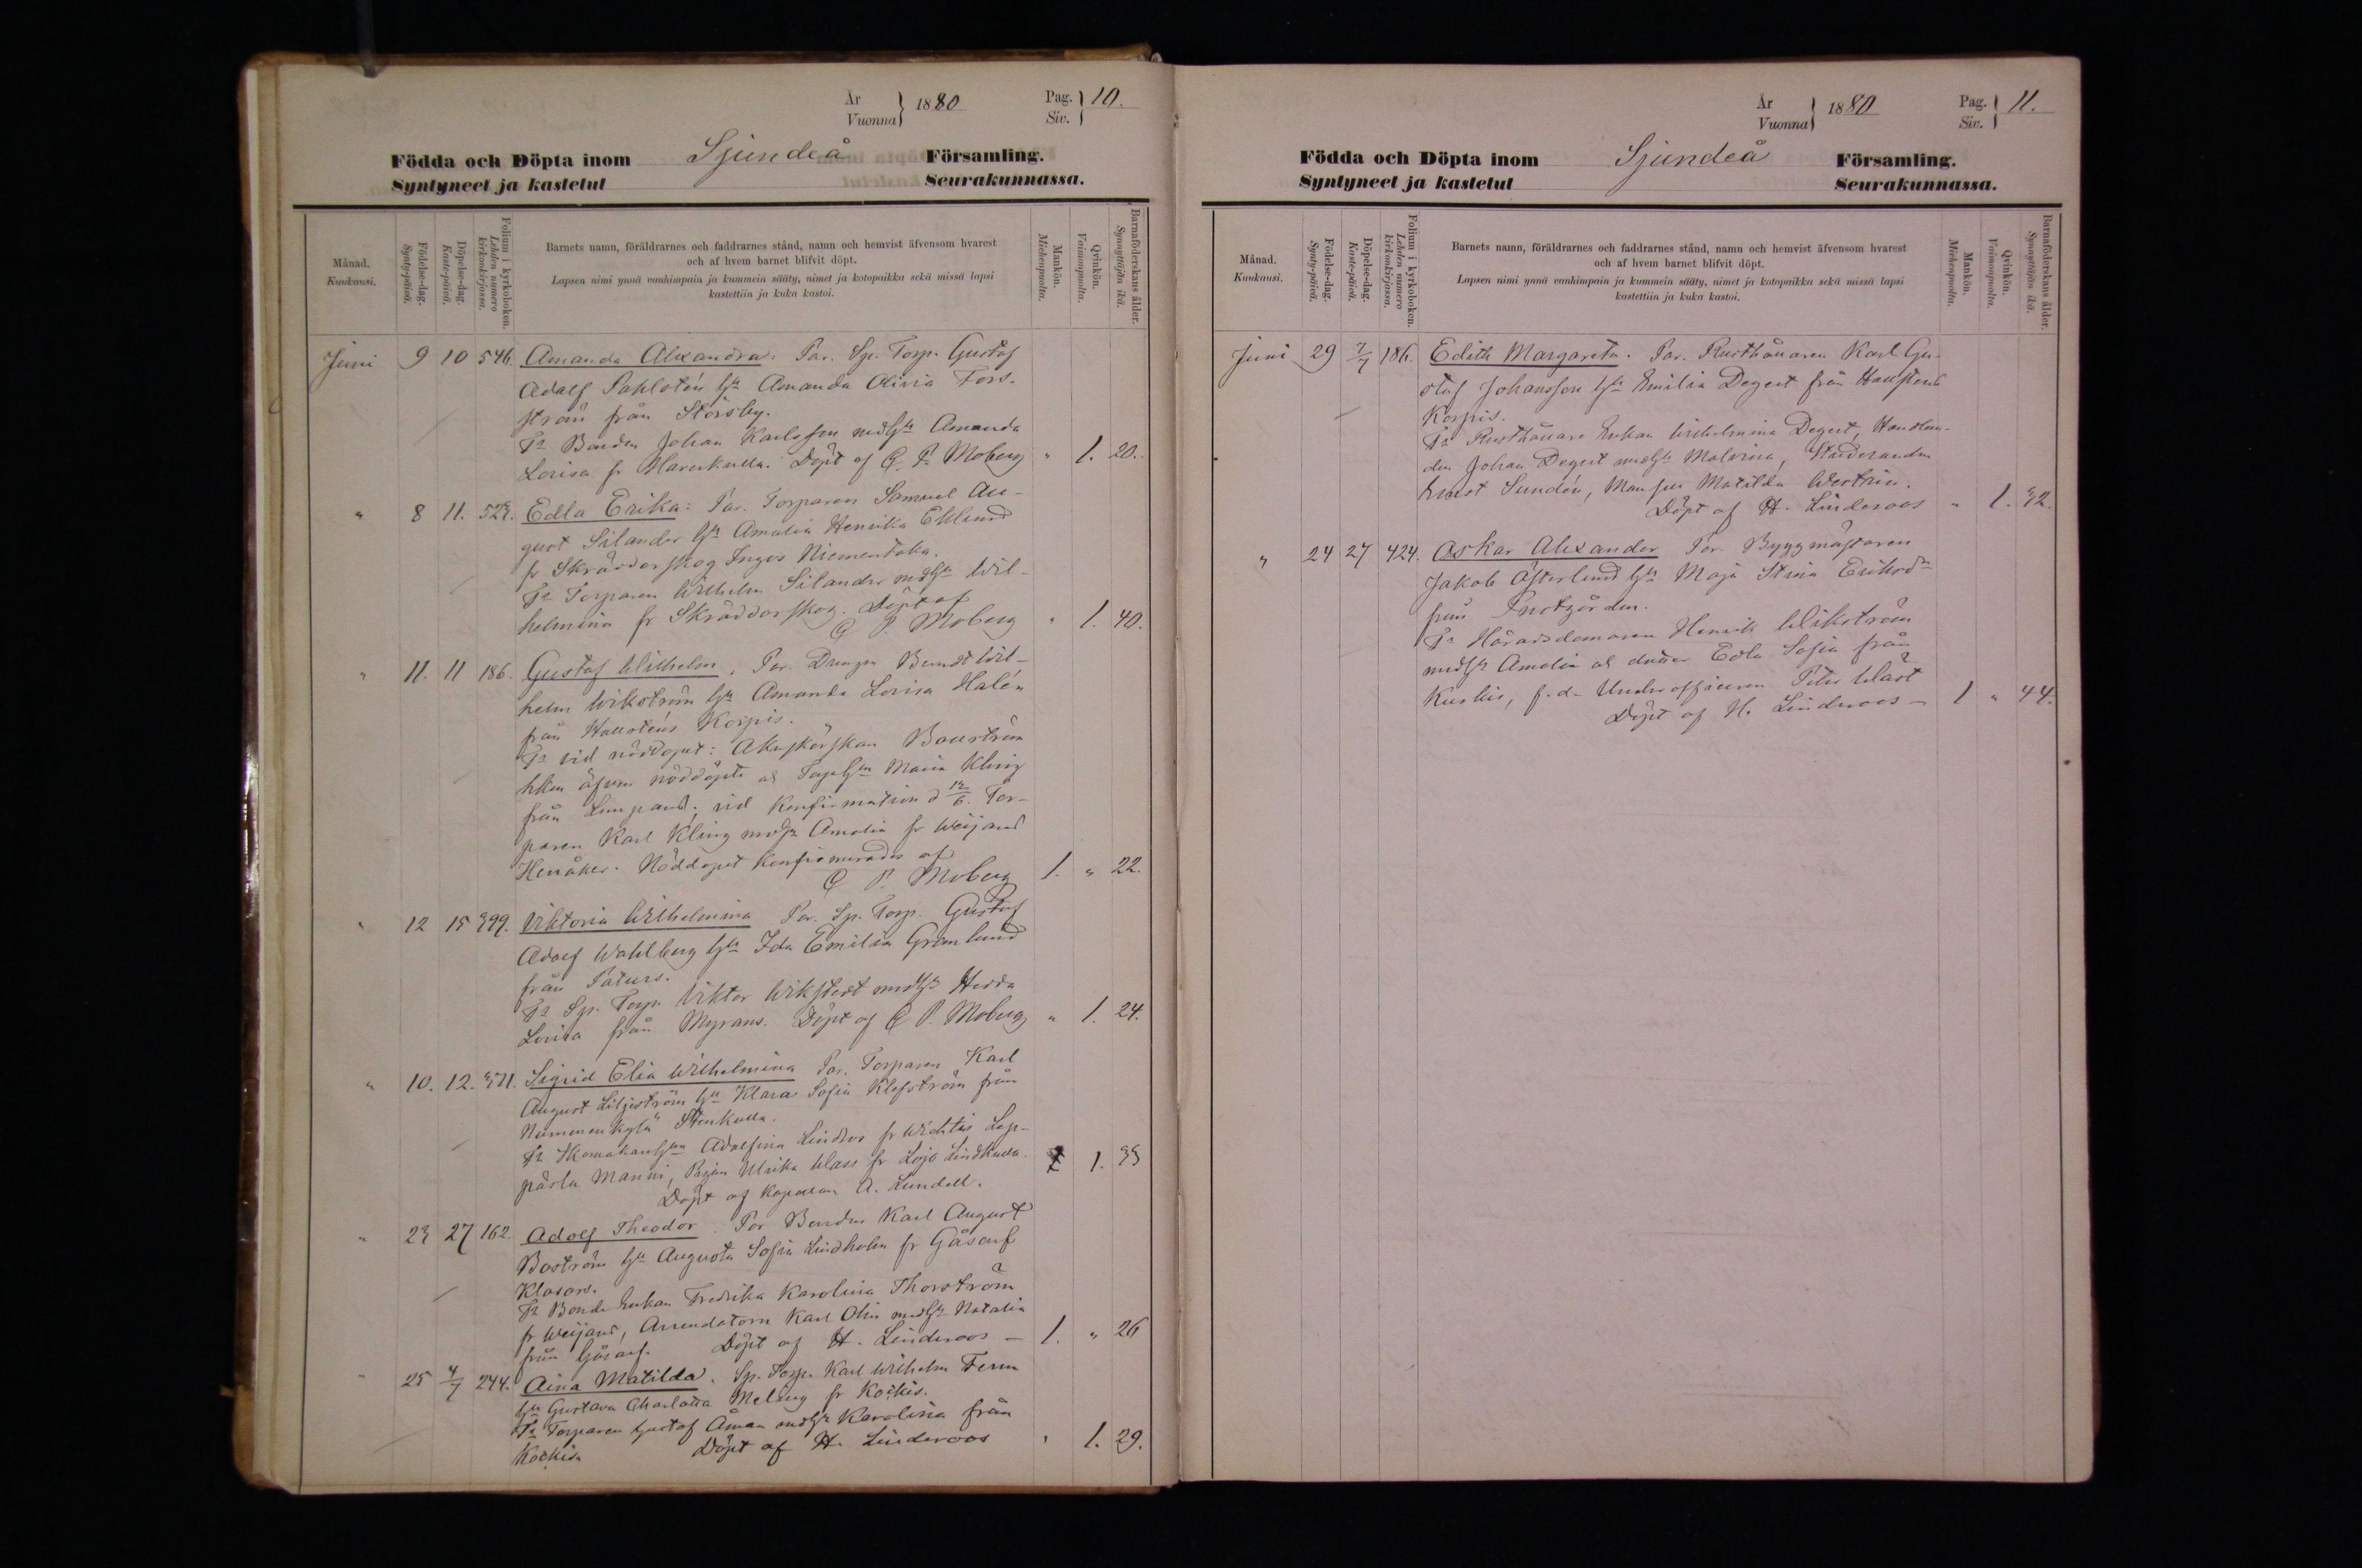 År
Vuonna } 1880
Pag.
Siv. } 10.
Födda och Döpta inom Sjundeå Församling.
Syntyneet ja kastetut Seurakunnassa.
Månad.
Kuukausi.
Födelse-dag.
Synty-päivä.
Döpelse-dag.
Kaste-päivä.
Folium i kyrkoboken.
Lehden numero
kirkonkirjassa.
Barnets namn, föräldrarnes och faddrarnes stånd, namn och hemvist äfvensom hvarest
och af hvem barnet blifvit döpt.
Lapsen nimi ynnä vanhimpain ja kummein sääty, nimet ja kotopaikka sekä missä lapsi
kastettiin ja kuka kastoi.
Mankön.
Miehenpuolta.
Qvinkön.
Vaimonpuolta.
Barnaföderskans ålder.
Synnyttäjän ikä.
Juni 9 10 546. Amanda Alexandra. Par. Sp. Torp. Gustaf
Adolf Sahlstén hu Amanda Olivia Fors-
ström från Störsby.
Fr Bonden Johan Karlsson mdhu Amanda
Lovisa fr Harvskulla. Döpt af G. P. Moberg " 1. 20.
" 8 11. 523. Edla Erika: Par. Torparen Samuel Au-
gust Silander hu Amalia Henrika Eklund
fr Skräddarskog Inges Niementaka.
Fr Torparen Wilhelm Silander mdhu Wil-
helmina fr Skräddarskog. Döpt af
G P. Moberg " 1. 40.
" 11. 11 186. Gustaf Wilhelm. Par. Drängen Berndt Wil-
helm Wikström hu Amanda Lovisa Halén
från Hansténs Korpis.
Fr vid nöddopet: Akuskörskan Boström
hken äfven nöddöpte och Torphun Maria Kling
från Lempans; vid konfirmation d 12/6. Tor-
paren Karl Kling mdhu Amalia fr Weijans
Henåker. Nöddopet konfirmerades af
G P. Moberg 1. " 22.
" 12 15 399. Viktoria Wilhelmina Par. Sp. Torp. Gustaf
Adolf Wahlberg hu Ida Emilia Granlund
från Paturs.
Fr Sp. Torp. Viktor Wikstedt mdhu Hedda
Lovisa från Myrans. Döpt af G P. Moberg " 1. 24.
" 10. 12. 371. Sigrid Elia Wilhelmina Par. Torparen Karl
August Liljeström hu Klara Sofia Klefström från
Nummenkylä Stenkulla.
Fr Skomakarhun Adolfina Lindroos fr Wichtis Lep-
pärlä Manni, Pigan Ulrika Wass fr Lojo Lindkulla.
Döpt af Kapellan A. Lundell. 1. 33
" 23 27 162. Adolf Theodor. Par Bonden Karl August
Boström hu Augusta Sofia Lindholm fr Gåsarf
Klasars.
Fr Bonde Enkan Fredrika Karolina Thorström
fr Weijans, Arrendatorn Karl Olin mdhu Natalia
från Gåsarf. Döpt af H. Linderoos – 1. " 26
" 25 4/7 244. Aina Matilda. Sp. Torp. Karl Wilhelm Ferm
hu Gustava Charlotta Melberg fr Kockis.
Fr Torparen Gustaf Åman mdhu Karolina från
Kockis. Döpt af H. Linderoos " 1. 29.
År
Vuonna } 1880
Pag.
Siv. } 11.
Födda och Döpta inom Sjundeå Församling.
Syntyneet ja kastetut Seurakunnassa.
Månad.
Kuukausi.
Födelse-dag.
Synty-päivä.
Döpelse-dag.
Kaste-päivä.
Folium i kyrkoboken.
Lehden numero
kirkonkirjassa.
Barnets namn, föräldrarnes och faddrarnes stånd, namn och hemvist äfvensom hvarest
och af hvem barnet blifvit döpt.
Lapsen nimi ynnä vanhimpain ja kummein sääty, nimet ja kotopaikka sekä missä lapsi
kastettiin ja kuka kastoi.
Mankön.
Miehenpuolta.
Qvinkön.
Vaimonpuolta.
Barnaföderskans ålder.
Synnyttäjän ikä.
Juni 29 7/7 186. Edith Margareta. Par. Rusthållaren Karl Gu-
staf Johansson hu Emilia Degert från Hansténs
Korpis.
Fr Rusthållare Enkan Wilhelmina Degert, Handlan-
den Johan Degert mdhu Malvina, Studeranden
Ernst Sundén, Mamsell Matilda Westrin.
Döpt af H. Linderoos " 1. 32.
" 24 27 424. Oskar Alexander Par. Byggmästaren
Jakob Österlund hu Maja Stina Eriksdr
från Prostgården.
Fr Häradsdomaren Henrik Wikström
mdhu Amalia och dotter Edla Sofia från
Kuskis, f.d. Underofficeren Peter Wast
Döpt af H. Linderoos – 1 " 44.